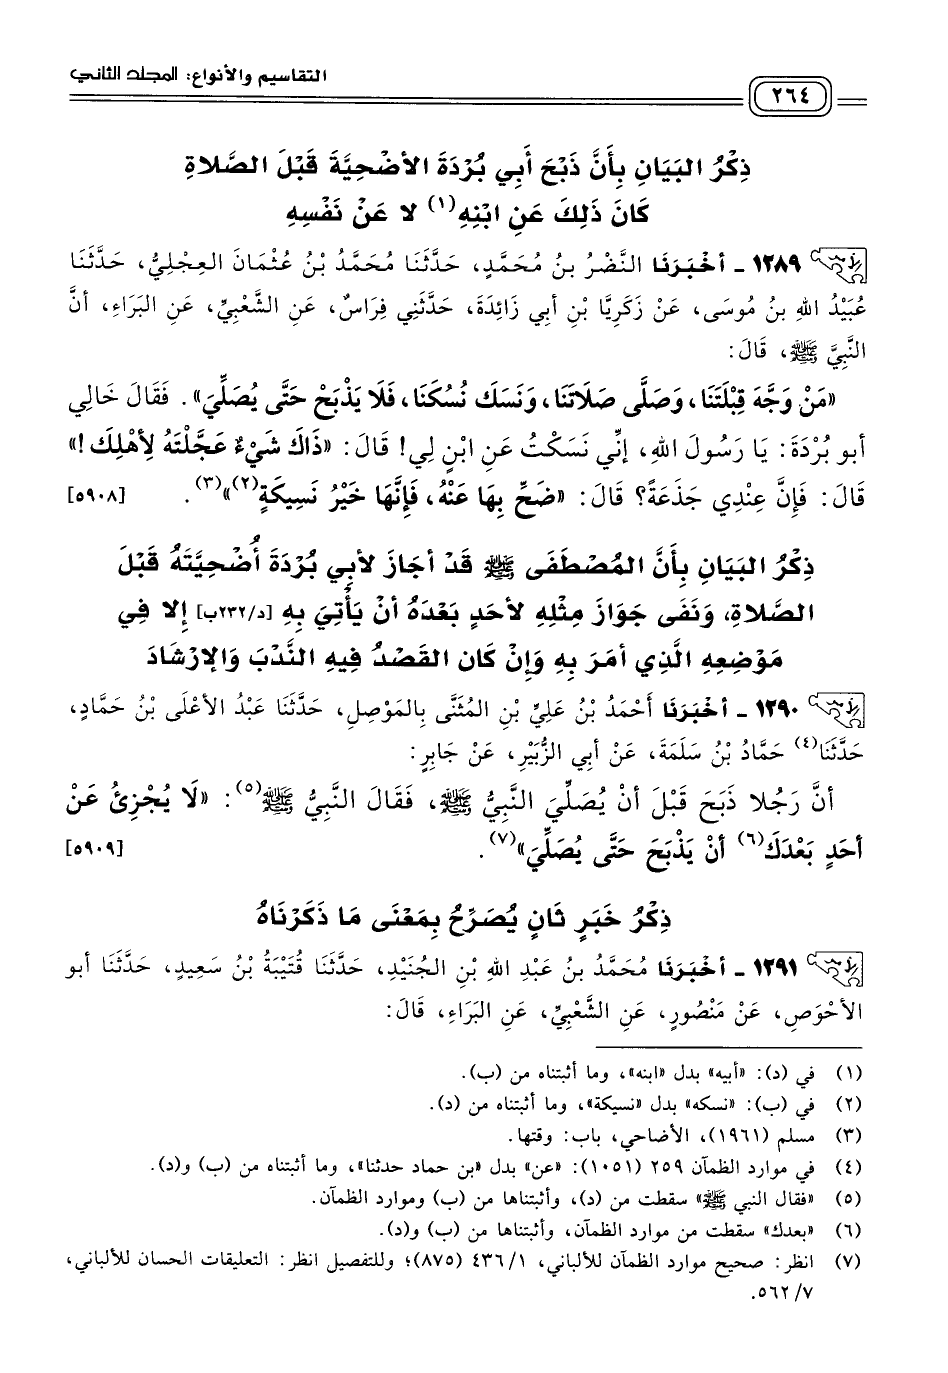 التقاسيم والأنواع: المجلد الثاني
٢٦٤
ذِكْرُ البَيَانِ بِأَنَّ ذَبْحَ أَبِي بُرْدَةَ الأضْحِيَّةَ قَبْلَ الصَّلاةِ
كَانَ ذَلِكَ عَنِ ابْنِهِ(١) لا عَنْ نَفْسِهِ
١٢٨٩ - أخْبَرَنَا النَّضْرُ بنُ مُحَمَّدٍ، حَدَّثَنَا مُحَمَّدُ بْنُ عُثْمَانَ العِجْلِيُّ، حَدَّثَنَا
عُبَيْدُ اللهِ بنُ مُوسَى، عَنْ زَكَرِيَّا بْنِ أبِي زَائِدَةَ، حَدَّثَنِي فِرَاسٌ، عَنِ الشَّعْبِيِّ، عَنِ البَرَاءِ، أنَّ
النَّبِيَّ ﷺ، قَالَ:
«مَنْ وَجَّهَ قِبْلَتَنَا، وَصَلَّى صَلَاتَنَا، وَنَسَكَ نُسُكَنَا، فَلَا يَذْبَحْ حَتَّى يُصَلِّيَ». فَقَالَ خَالِي
أبو بُرْدَةَ: يَا رَسُولَ اللهِ، إنِّي نَسَكْتُ عَنِ ابْنٍ لِي! قَالَ: «ذَاكَ شَيْءٌ عَجَّلْتَهُ لِأهْلِكَ!»
قَالَ: فَإنَّ عِنْدِي جَذَعَةً؟ قَالَ: «ضَحِّ بِهَا عَنْهُ، فَإنَّهَا خَيْرُ نَسِيكَةٍ(٢)»(٣). [٥٩٠٨]
ذِكْرُ البَيَانِ بِأَنَّ المُصْطَفَى ﷺ قَدْ أجَازَ لأبِي بُرْدَةَ أُضْحِيَّتَهُ قَبْلَ
الصَّلاةِ، وَنَفَى جَوَازَ مِثْلِهِ لأحَدٍ بَعْدَهُ أنْ يَأْتِيَ بِهِ [د/٢٣٢ب] إلا فِي
مَوْضِعِهِ الَّذِي أمَرَ بِهِ وَإنْ كَان القَصْدُ فِيهِ النَّدْبَ وَالإرْشَادَ
١٢٩٠ - أخْبَرَنَا أَحْمَدُ بْنُ عَلِيِّ بْنِ المُثَنَّى بِالمَوْصِلِ، حَدَّثَنَا عَبْدُ الأعْلَى بْنُ حَمَّادٍ،
حَدَّثَنَا(٤) حَمَّادُ بْنُ سَلَمَةَ، عَنْ أبِي الزُّبَيْرِ، عَنْ جَابِرٍ:
أنَّ رَجُلا ذَبَحَ قَبْلَ أنْ يُصَلِّيَ النَّبِيُّ ﷺ، فَقَالَ النَّبِيُّ ﷺ(٥): «لَا يُجْزِئُ عَنْ
أحَدٍ بَعْدَكَ(٦) أنْ يَذْبَحَ حَتَّى يُصَلِّيَ»(٧). [٥٩٠٩]
ذِكْرُ خَبَرٍ ثَانٍ يُصَرِّحُ بِمَعْنَى مَا ذَكَرْنَاهُ
١٢٩١ - أخْبَرَنَا مُحَمَّدُ بنُ عَبْدِ اللهِ بْنِ الجُنَيْدِ، حَدَّثَنَا قُتَيْبَةُ بْنُ سَعِيدٍ، حَدَّثَنَا أبو
الأحْوَصِ، عَنْ مَنْصُورٍ، عَنِ الشَّعْبِيِّ، عَنِ البَرَاءِ، قَالَ:
(١) في (د): «أبيه» بدل «ابنه»، وما أثبتناه من (ب).
(٢) في (ب): «نسكه» بدل «نسيكة»، وما أثبتناه من (د).
(٣) مسلم (١٩٦١)، الأضاحي، باب: وقتها.
(٤) في موارد الظمآن ٢٥٩ (١٠٥١): «عن» بدل «بن حماد حدثنا»، وما أثبتناه من (ب) و(د).
(٥) «فقال النبي ﷺ» سقطت من (د)، وأثبتناها من (ب) وموارد الظمآن.
(٦) «بعدك» سقطت من موارد الظمآن، وأثبتناها من (ب) و(د).
(٧) انظر: صحيح موارد الظمآن للألباني، ٤٣٦/١ (٨٧٥)؛ وللتفصيل انظر: التعليقات الحسان للألباني،
٥٦٢/٧.